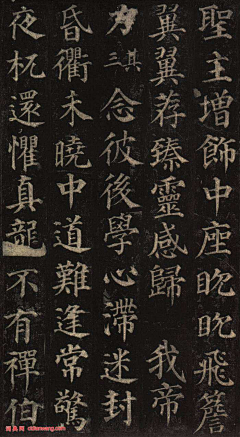 聖主增飾中座眈眈飛簷
翼翼荐臻靈感歸 我帝
力 其三 念彼後學心滯迷封
昏衢未曉中道難逢常驚
夜杌還懼真龍不有禪伯